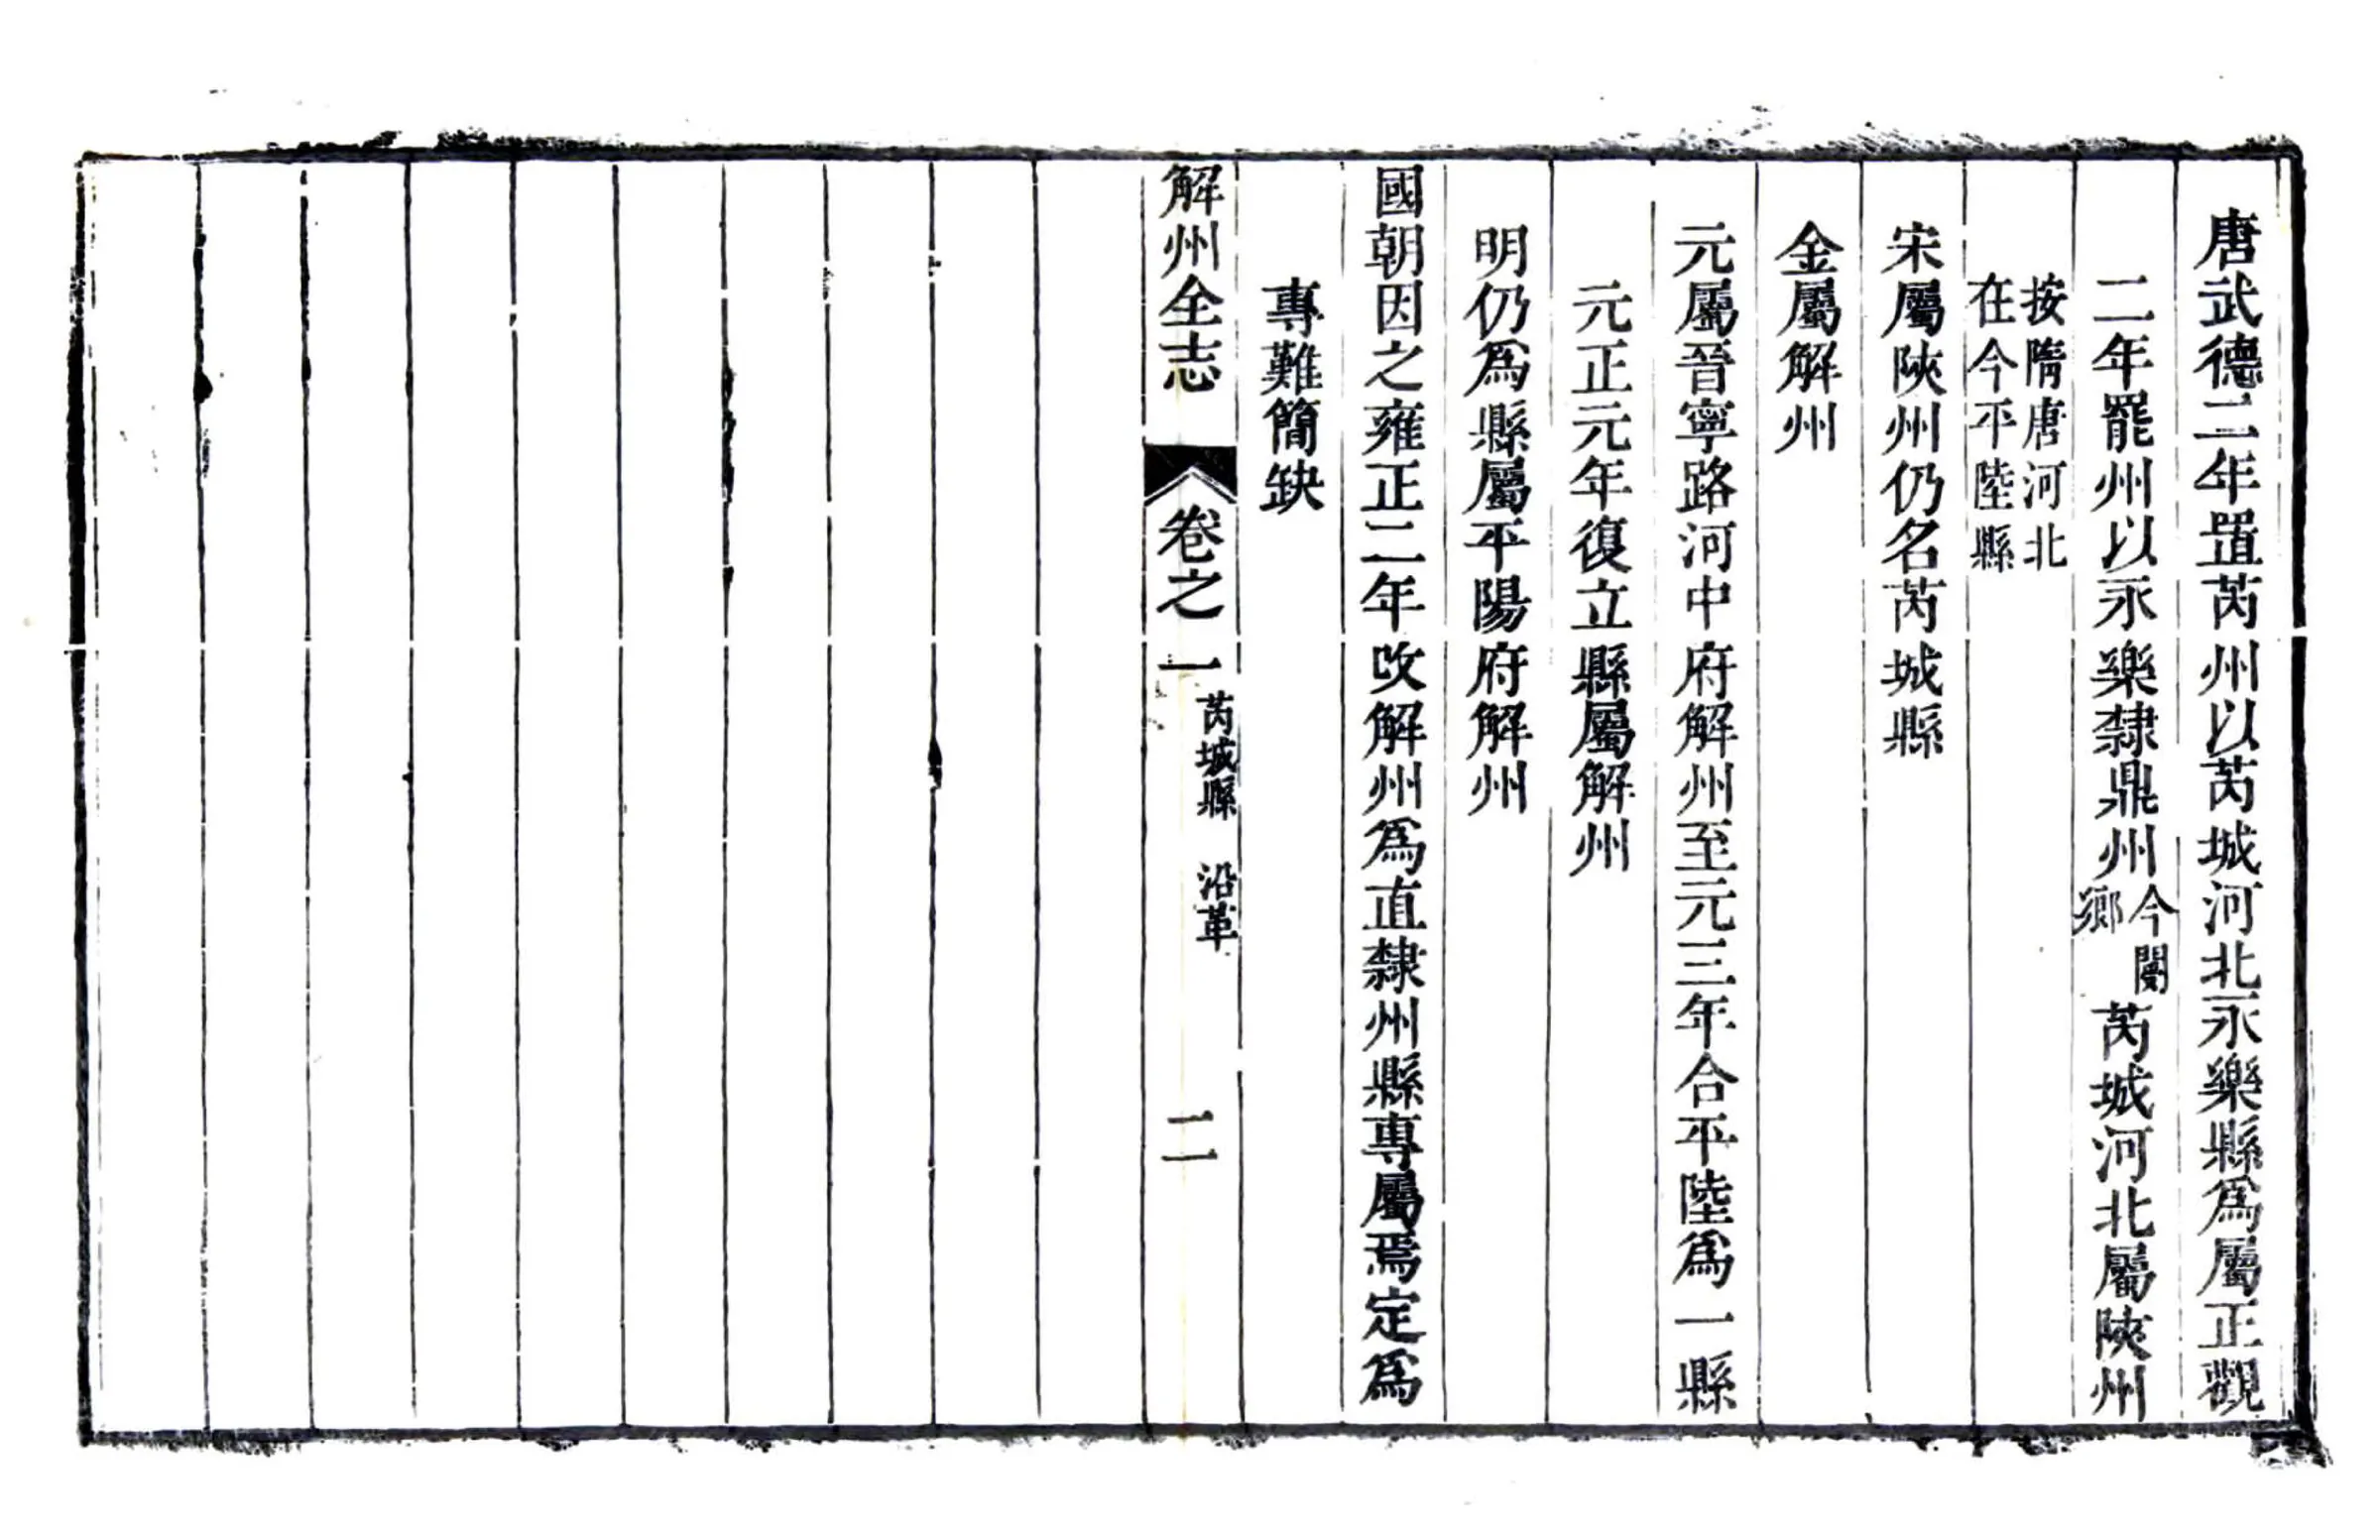 唐武德二年置芮州以芮城河北永樂縣爲屬正觀
二年罷州以永樂隸鼎州今閿鄉芮城河北屬陝州
按隋唐河北
在今平陸縣
宋屬陝州仍名芮城縣
金屬解州
元屬晉寧路河中府解州至元三年合平陸爲一縣
元正元年復立縣屬解州
明仍爲縣屬平陽府解州
國朝因之雍正二年改解州爲直隸州縣專屬焉定爲
專難簡缺
解州全志 卷之一 芮城縣 沿革 二